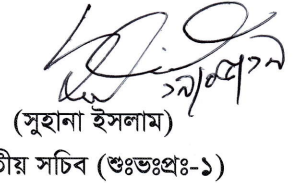 (সুহানা ইসলাম)
তীয় সচিব (শুঃভঃপ্রঃ-১)